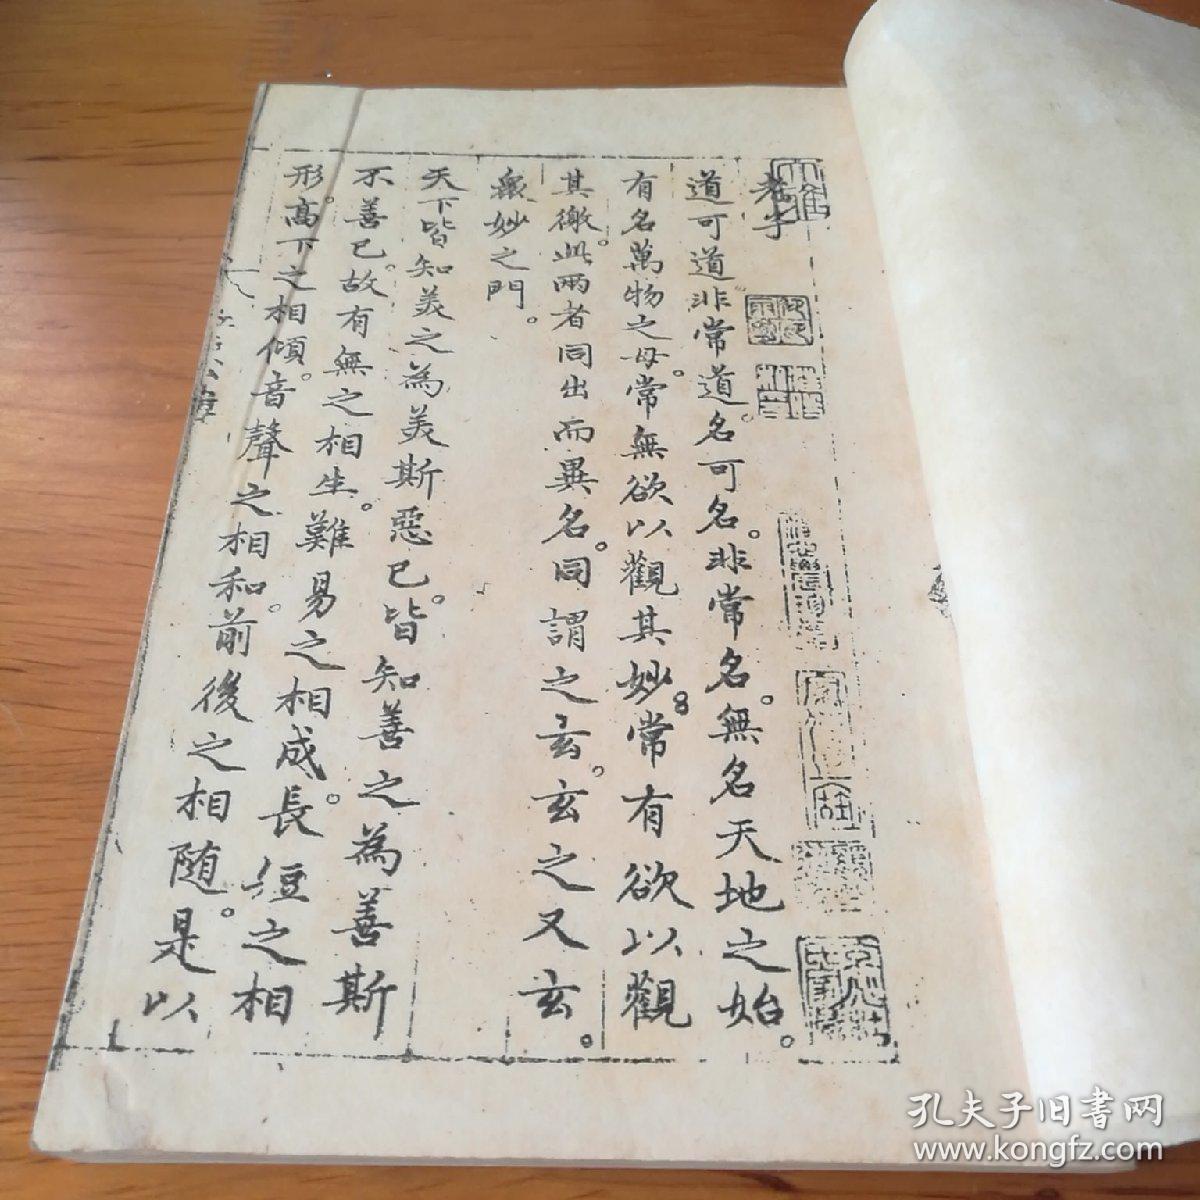 老子
道可道非常道。名可名。非常名。無名天地之始。
有名萬物之母。常無欲以觀其妙。常有欲以觀
其徼。此兩者同出而異名。同謂之玄。玄之又玄。
衆妙之門。
天下皆知美之為美斯惡已。皆知善之為善斯
不善已。故有無之相生。難易之相成。長短之相
形。高下之相傾。音聲之相和。前後之相随。是以
孔夫子旧書网
www.kongfz.com